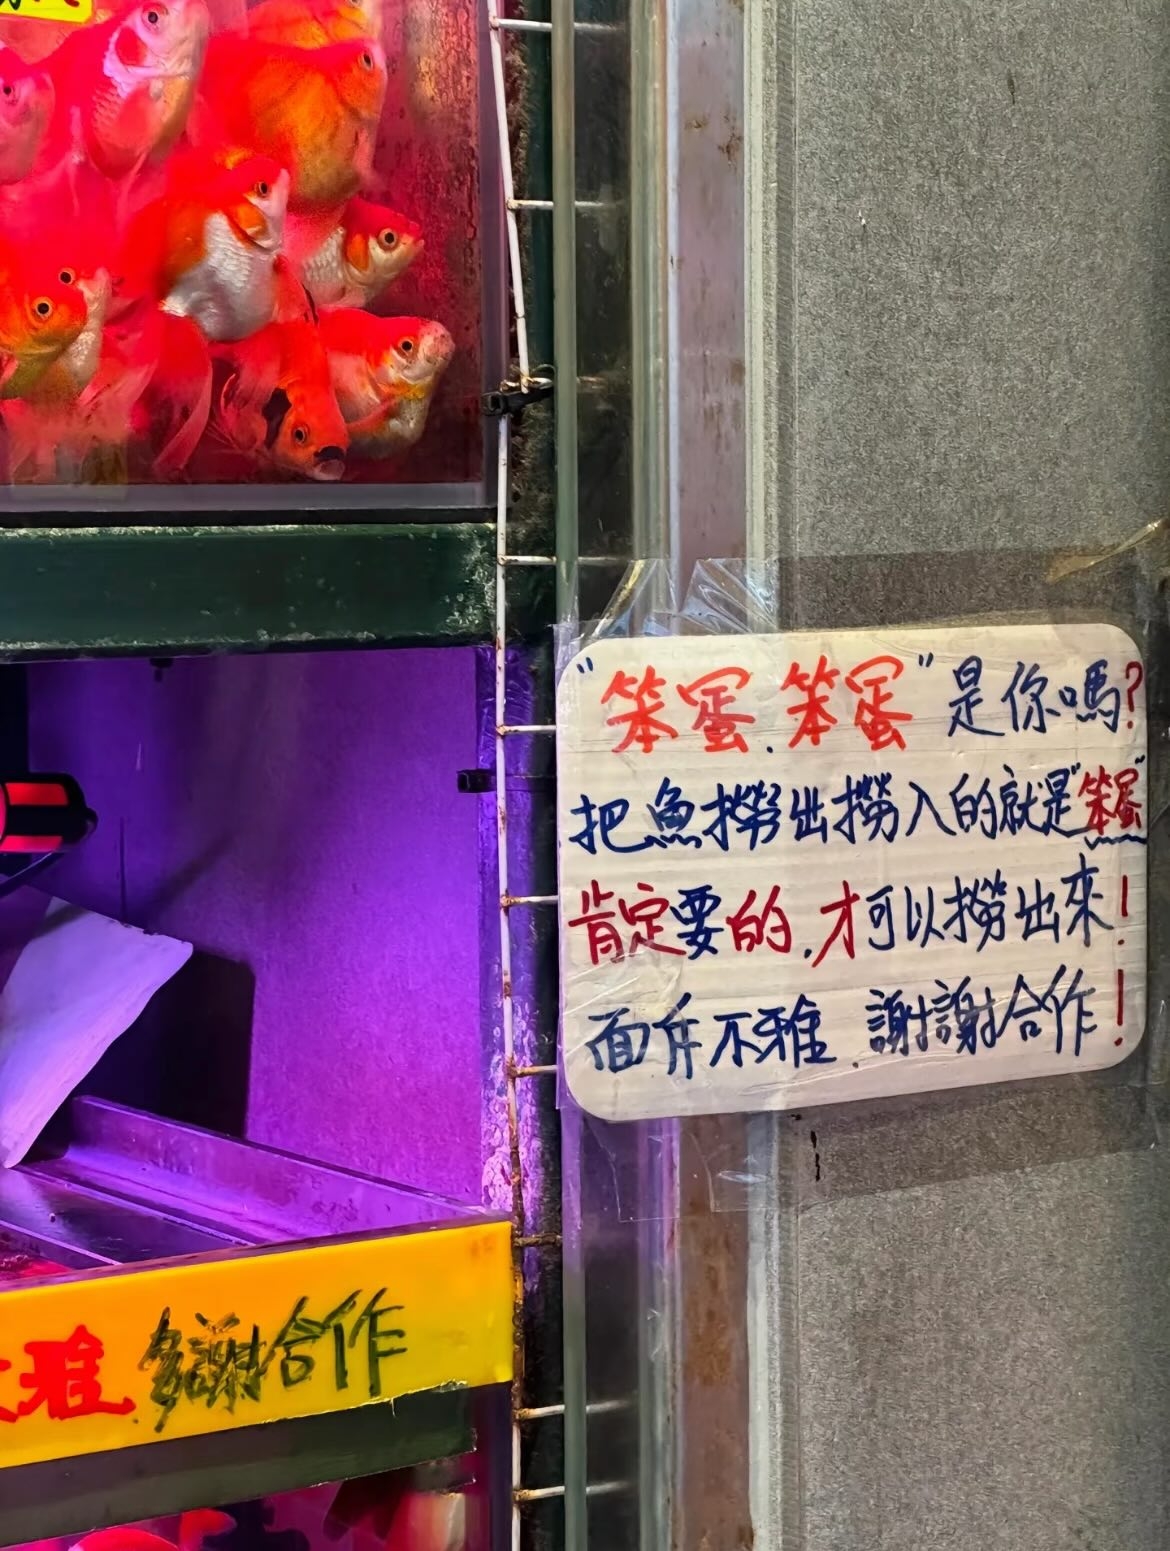 "笨蛋.笨蛋"是你嗎?
把魚撈出撈入的就是"笨蛋"
肯定要的.才可以撈出來!
面斥不雅 謝謝合作!
雅 多謝合作